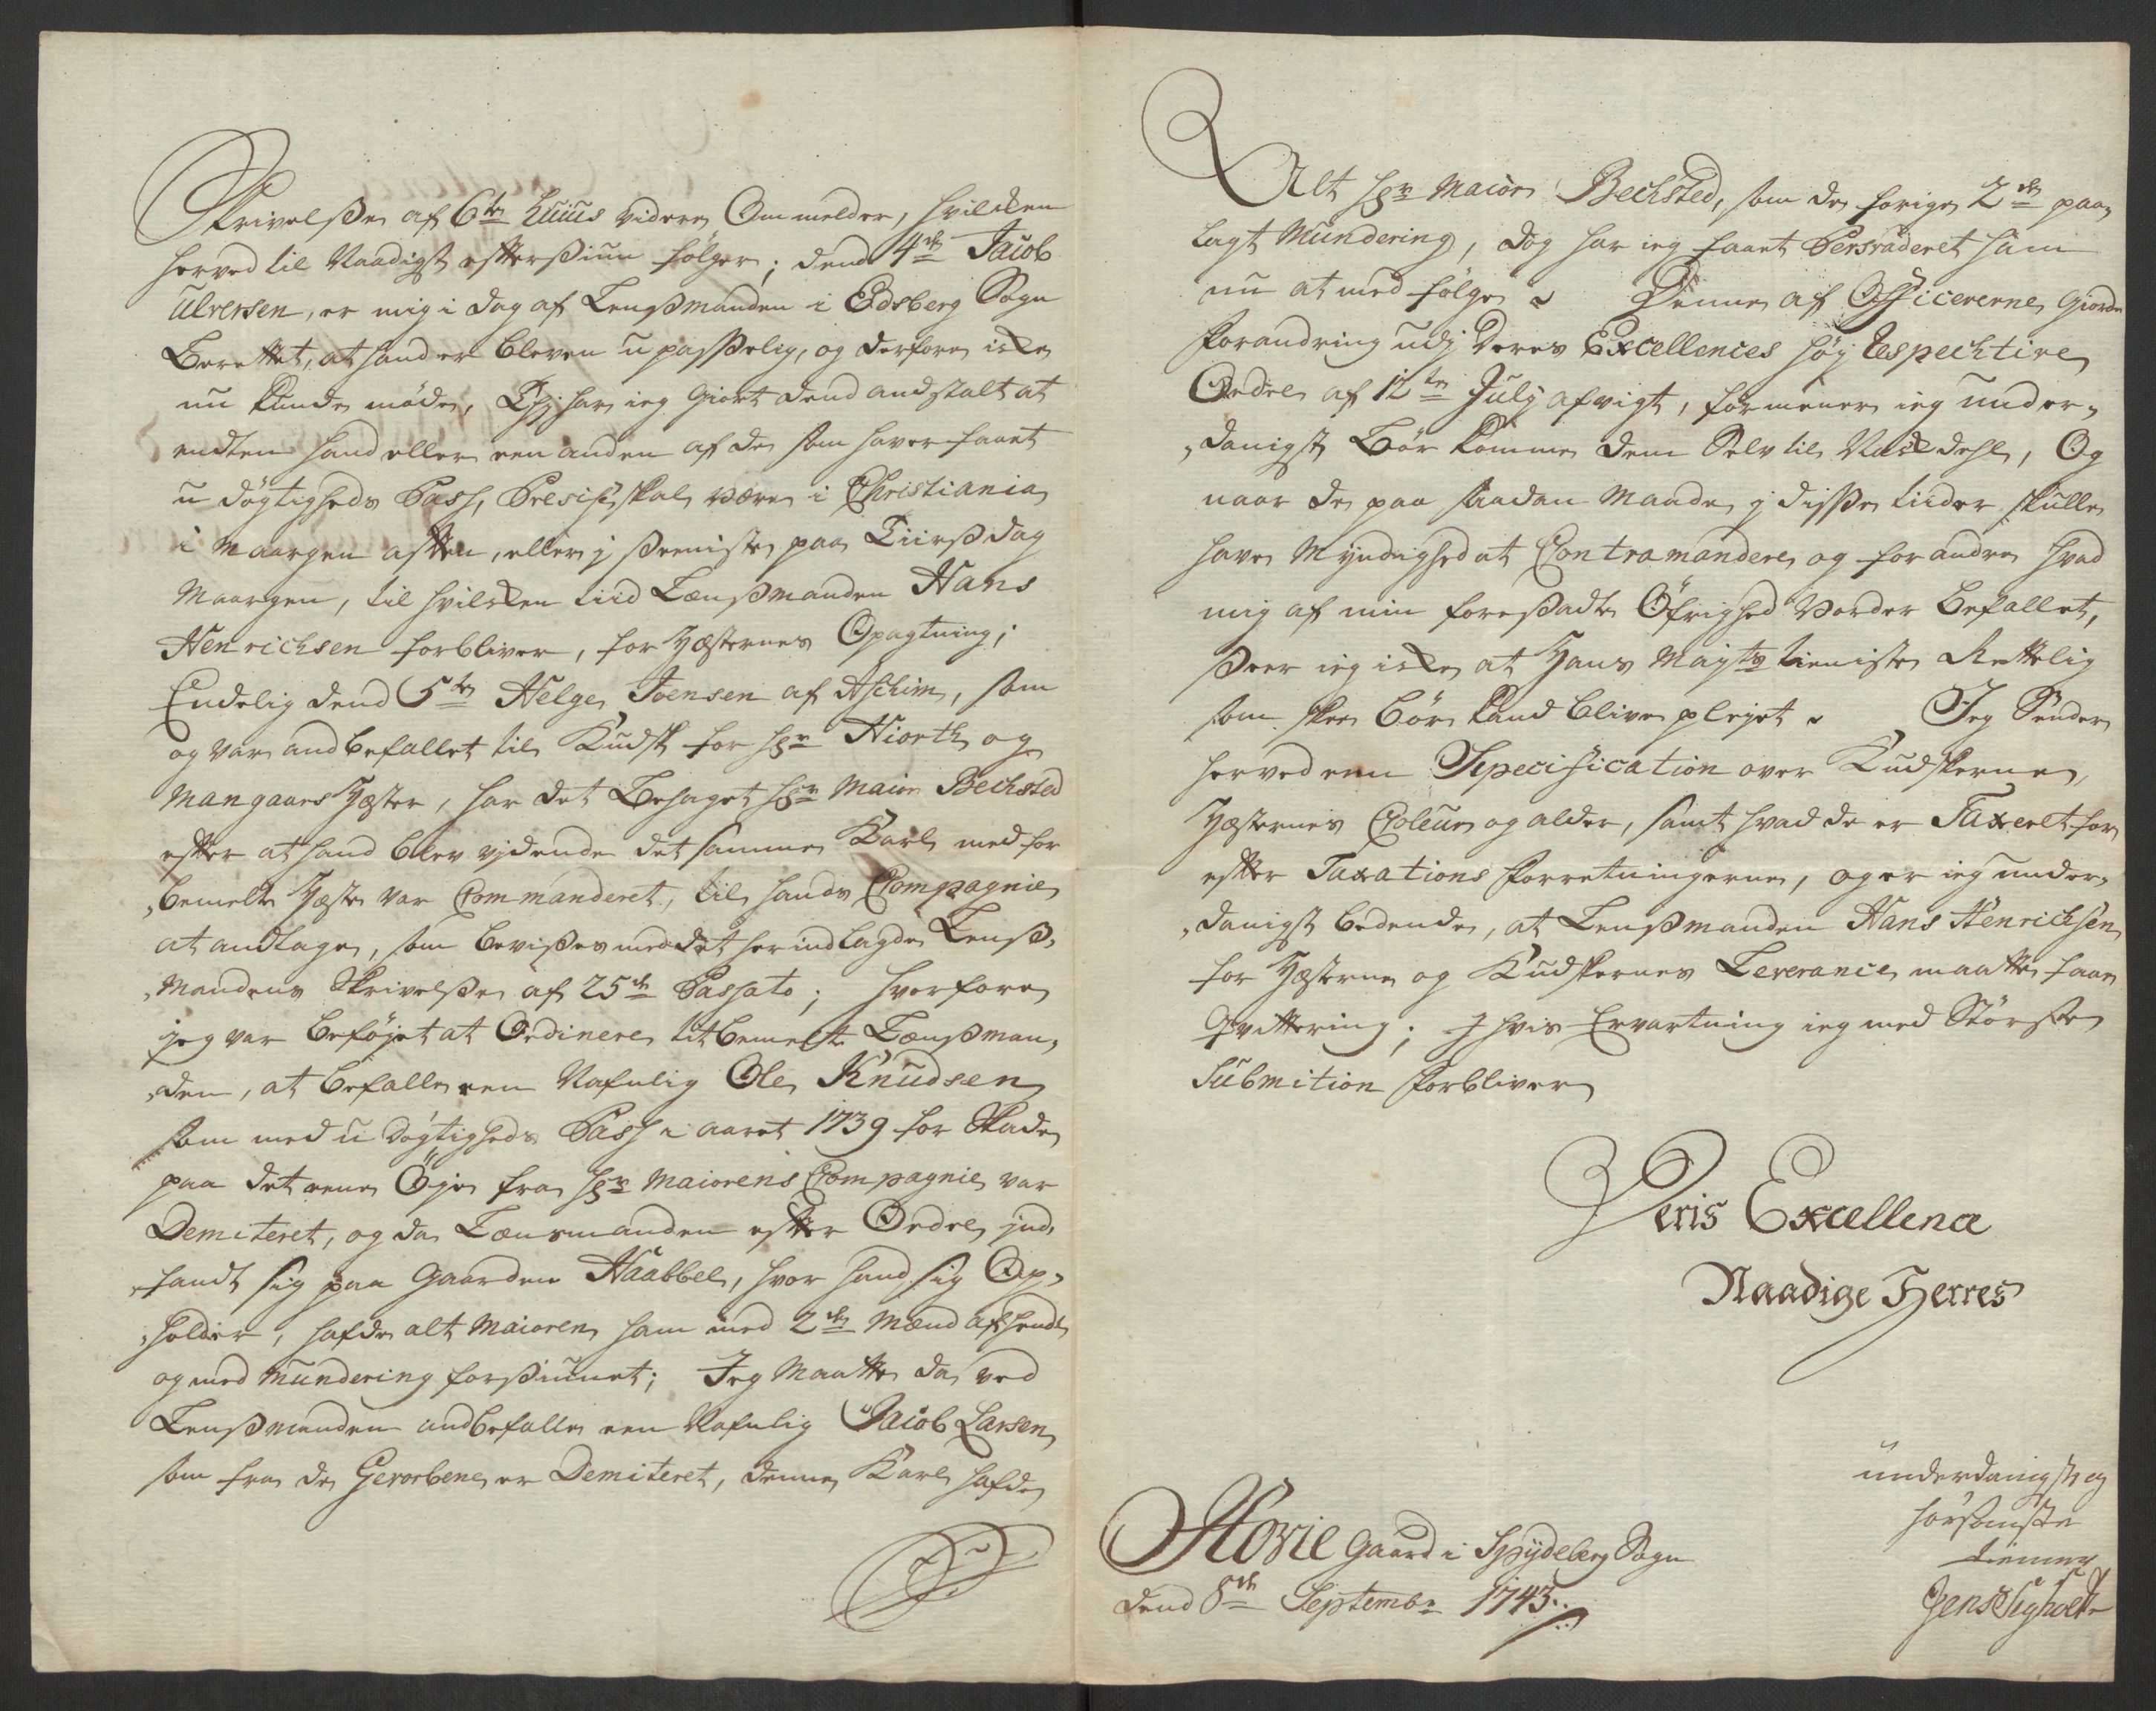 Skrivelße af 6te Huius videre Ommelder, hvilcken
herved til Naadigst effterßiun følger; dend 4de Jacob
Ulversen, er mig i dag af Lenßmanden i Edsberg Sogn
Berettet, at hand er bleven u passelig, og derfore icke
nu kunde møde, Thj har ieg giort dend andstalt at
endten hand eller een anden af de som haver faaet
u døgtigheds Pass, Presise skal være i Christiania
i Maargen afften, eller j ßeeniste paa Tiirßdag
Maargen, til hvilcken tiid Lænßmanden Hans
Henrichsen forbliver, for Hæsternes Opagtning;
Endelig dend 5te Helge Joensen af Aschim, som
og var andbefallet til Kudsk for Hr Hiorth og
Mangaars Hæster, har det Behaget Hr Maior Bechsted
effter at hand blev vjdende det samme Karl med for
„bemelte Hæste var Commanderet, til hands Compagnie
at andtage, som bevißes med det her indlagde Lenß„
„Mandens Skrivelße af 25de Passato; hvorfore
jeg var beføjet at Ordinere titbemelte Lænßman„
„den, at befalle een Nafnlig Ole Knudsen
som med u døgtigheds Pass i aaret 1739 for Skade
paa det eene Øje fra Hr Maiorens Compagnie var
Demiteret, og da Lænsmanden effter Ordre ind„
„fandt sig paa Gaarden Haabbel, hvor hand sig Op„
„holder, hafde alt Maioren ham med 2de Mænd afhendt
og med Mundering forßiunet; Jeg Maatte da ved
Lenßmanden andbefalle een Nafnlig Jacob Larsen
som fra de Gevorbene er Demiteret, denne Karl hafde
Alt Hr Maior Bechsted, som de forige 2de paa„
lagt Mundering, dog har ieg faaet Persvaderet ham
nu at med følge. Denne af Officererne Giorde
forandring udj Deres Excellences høj Respechtive
Ordre af 12te Julij afvigt, formener ieg under„
„danigst Bør komme dem Selv til Last, Og
naar de paa saadan Maade j disse tiider skulle
have Myndighed at Contramandere og forandre hvad
mig af min foresadte Øfrighed vorder befallet,
ßeer ieg icke at Hans Mayts tieniste Rettelig
som skee bør kand blive plejet. Jeg Sender
herved een Specification over Kudskerne,
Hæsternes Coleur og alder, samt hvad de er Taxeret for
effter Taxations forretningerne, og er ieg under„
„danigst bedende, at Lenßmanden Hans Henrichsen
for Hæsterne og Kudskernes Leverance maatte faae
Qvittering; J hvis Ervartning ieg med Største
Submition forbliver
Deris Excellence
Naadige Herres
underdanigst og
hørsomste
tienner
Jens Sigholt
Hovie gaard i Spydeberg Sogn
dend 8de Septembr 1743.